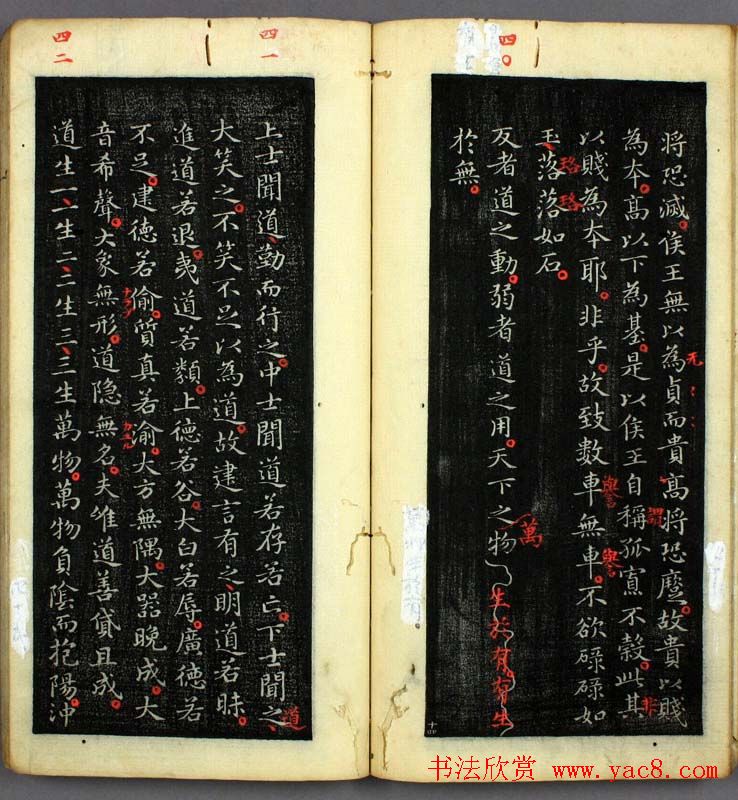 四〇
將恐滅。侯王無以為貞而貴高將恐蹷。故貴以賤
无
為本。高以下為基。是以侯王自稱孤寡不穀。此其
謂
非
以賤為本耶。非乎。故致數車無車。不欲碌碌如
譽
譽
玉落落如石。
珞珞
反者道之動。弱者道之用。天下之物生於有。有生
萬
於無。
四一
上士聞道、勤而行之。中士聞道若存若亡。下士聞之、
道
大笑之。不笑不足以為道。故建言有之、明道若昧。
進道若退。夷道若類。上德若谷。大白若辱。廣德若
不足。建德若偷。質真若渝。大方無隅。大器晚成。大
音希聲。大象無形。道隐無名。夫惟道善貸且成。
四二
道生一、一生二、二生三、三生萬物。萬物負陰而抱陽。沖
书法欣赏 www.yac8.com